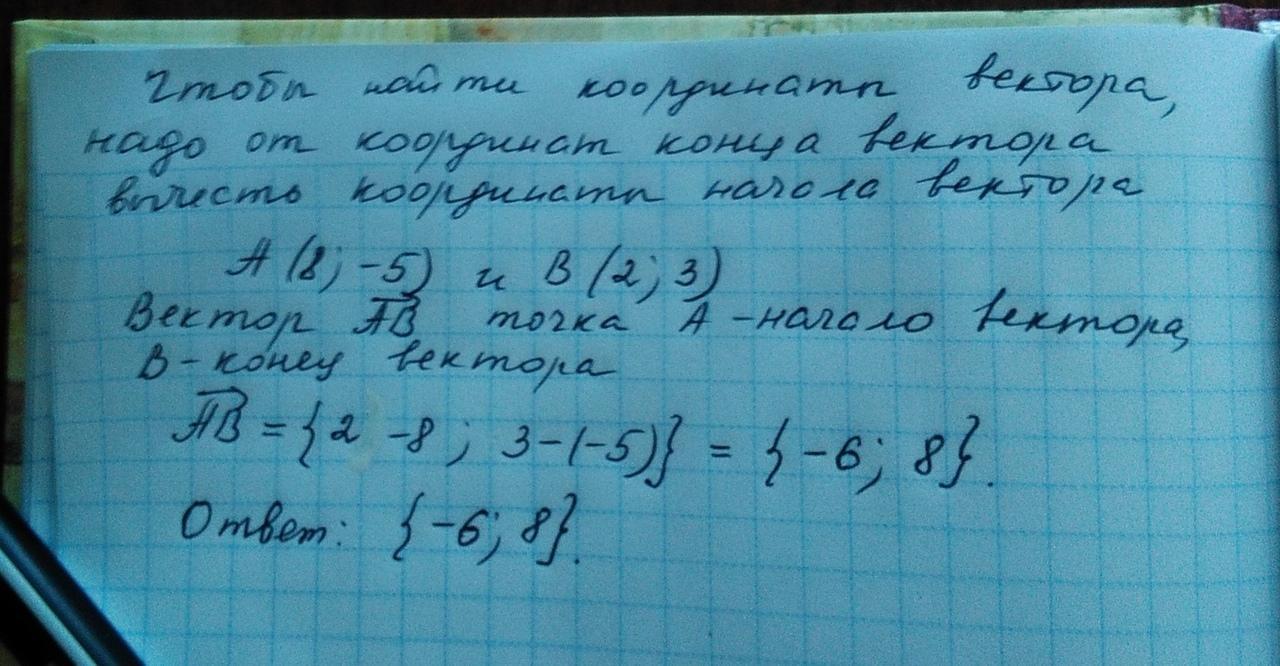 Чтобы найти координаты вектора,
надо от координат конца вектора
вычесть координаты начала вектора
A (8; -5) и B (2; 3)
Вектор AB точка A - начало вектора,
B - конец вектора
AB = {2 -8; 3-(-5)} = {-6; 8}.
Ответ: {-6; 8}.